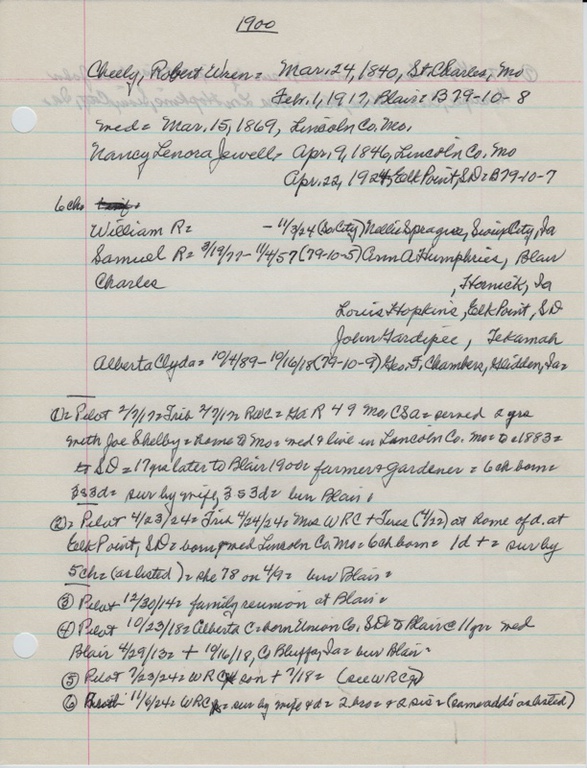 1900
Cheely, Robert Wren = Mar. 24, 1840, St. Charles, Mo
Feb. 1, 1917, Blair = B79-10-8
med = Mar. 15, 1869, Lincoln Co. Mo.
Nancy Lenora Jewell = Apr. 9, 1846, Lincoln Co. Mo
Apr. 22, 1924, Elk Point, SD = B79-10-7
6 ch =
William R = - 11/3/24 (So City) Nellie Sprague, Sioux City, Ia
Samuel R = 3/19/77 - 11/4/57 (79-10-5) Ann A Humphries, Blair
Charles , Hornick, Ia
Louis Hopkins, Elk Point, SD
John Gardipee, Tekamah
Alberta Clyda = 10/4/89 - 10/16/18 (79-10-9) Geo. F. Chambers, Glidden, Ia =
① = Pilot 2/7/17 = Trib 2/7/17 = RWC = Ga R 49 Mo, CSA = served 2 yrs
with Joe Shelby = home to Mo = med & live in Lincoln Co. Mo = to c1883 =
to SD = 17 yrs later to Blair 1900 = farmer & gardener = 6 ch born =
3s3d = sur by wife, 3s3d = bur Blair =
② = Pilot 4/23/24 = Trib 4/24/24 = Mrs WRC + Tues (4/22) at home of d. at
Elk Point, SD = born & med Lincoln Co. Mo = 6 ch born = 1d + = sur by
5 ch = (as listed) = she 78 on 4/9 = bur Blair =
③ Pilot 12/30/14 = family reunion at Blair =
④ Pilot 10/23/18 = Alberta C = born Union Co, SD = to Blair @ 11 yr = med
Blair 4/29/13 = + 10/16/18, Co Bluffs, Ia = bur Blair =
⑤ Pilot 7/23/24 = WRC son + 7/18 = (see WRC)
⑥ 11/6/24 = WRC = sur by wife & d = 2 bro = & 2 sis = (same adds as listed)